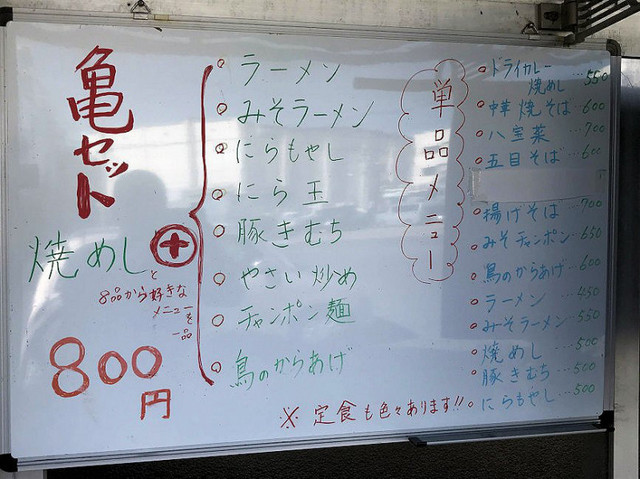 亀セット
焼めしと
⊕
8品から好きな
メニューを
一品
800
円
○ラーメン
○みそラーメン
○にらもやし
○にら玉
○豚きむち
○やさい炒め
○チャンポン麺
○鳥のからあげ
単品メニュー
○ドライカレー
焼めし…550
○中華焼そば…600
○八宝菜…700
○五目そば…600
○揚げそば…700
○みそチャンポン…650
○鳥のからあげ…600
○ラーメン…450
○みそラーメン…550
○焼めし…500
○豚きむち…500
○にらもやし…500
※定食も色々あります!!